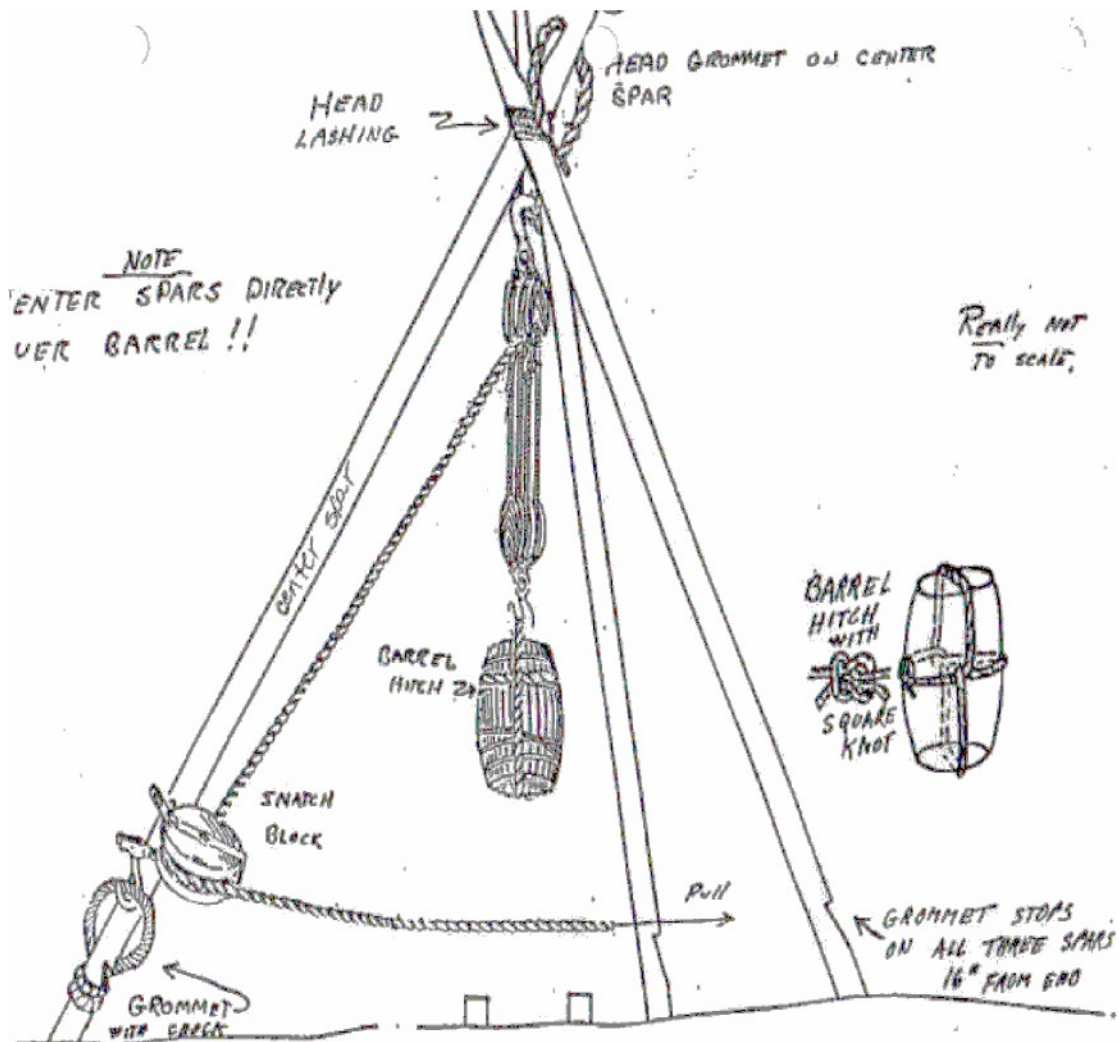 HEAD GROMMET ON CENTER
SPAR
HEAD
LASHING
NOTE
ENTER SPARS DIRECTLY
VER BARREL !!
REALLY NOT
TO SCALE.
center spar
BARREL
HITCH
BARREL
HITCH
WITH
SQUARE
KNOT
SNATCH
BLOCK
Pull
GROMMET STOPS
ON ALL THREE SPARS
16" FROM END
GROMMET
WITH